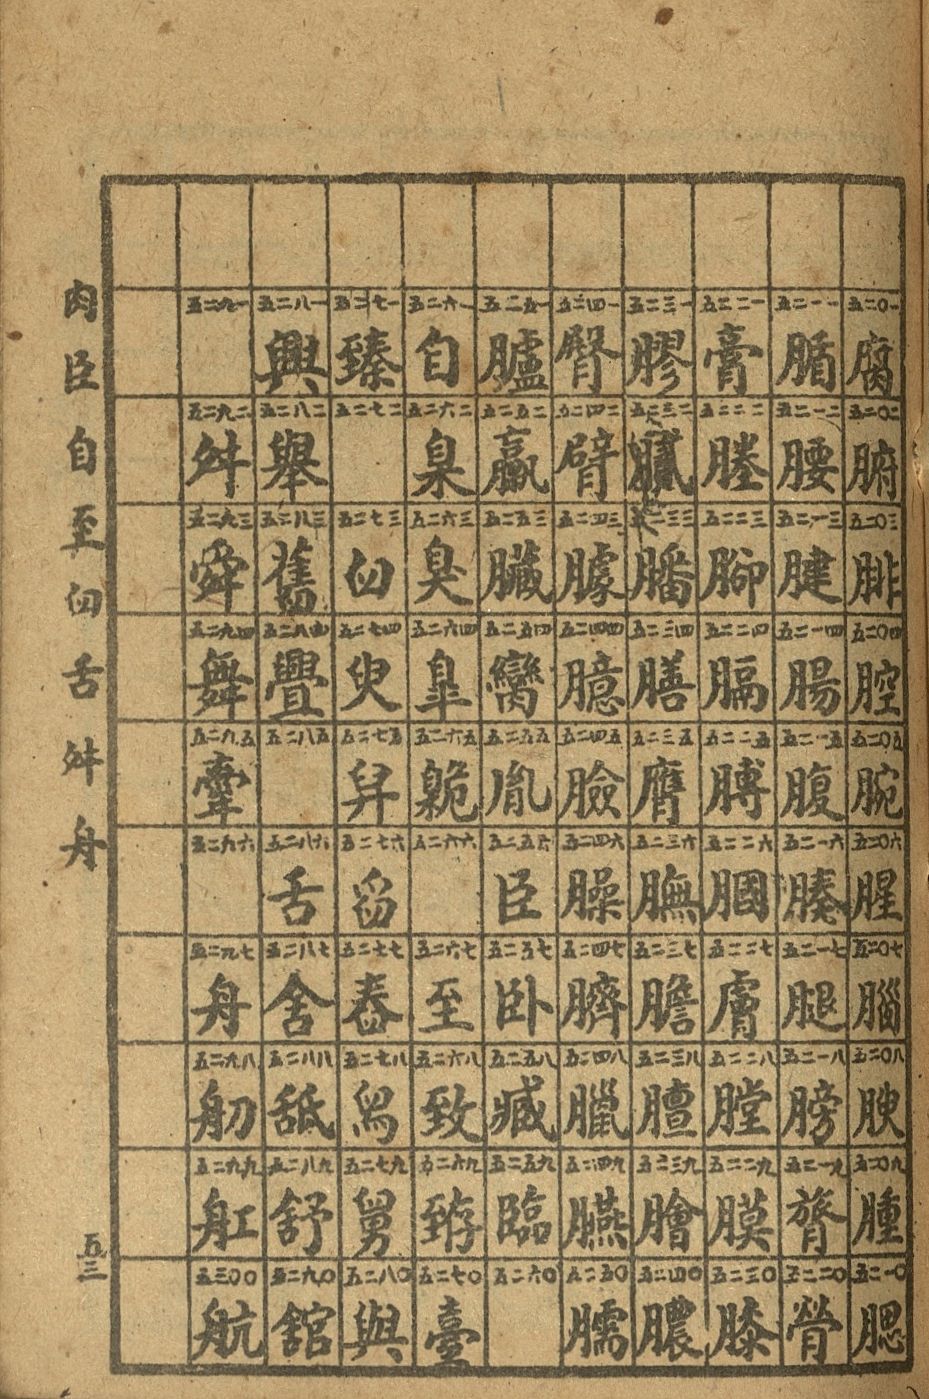 五二〇一 腐
五二〇二 腑
五二〇三 腓
五二〇四 腔
五二〇五 腕
五二〇六 腥
五二〇七 腦
五二〇八 腴
五二〇九 腫
五二一〇 腮
五二一一 腯
五二一二 腰
五二一三 腱
五二一四 腸
五二一五 腹
五二一六 腠
五二一七 腿
五二一八 膀
五二一九 膂
五二二〇 膋
五二二一 膏
五二二二
五二二三 腳
五二二四 膈
五二二五 膊
五二二六 膕
五二二七 膚
五二二八 膛
五二二九 膜
五二三〇 膝
五二三一 膠
五二三二 膩
五二三三 膰
五二三四 膳
五二三五 膺
五二三六 膴
五二三七 膽
五二三八 膻
五二三九 膾
五二四〇 膿
五二四一 臀
五二四二 臂
五二四三 臄
五二四四 臆
五二四五 臉
五二四六 臊
五二四七 臍
五二四八 臘
五二四九 臙
五二五〇 臑
五二五一 臚
五二五二 臝
五二五三 臟
五二五四 臠
五二五五 胤
五二五六 臣
五二五七 卧
五二五八 臧
五二五九 臨
五二六〇
五二六一 自
五二六二 臬
五二六三 臭
五二六四 臯
五二六五 臲
五二六六
五二六七 至
五二六八 致
五二六九 臶
五二七〇 臺
五二七一 臻
五二七二
五二七三 臼
五二七四 臾
五二七五 舁
五二七六 舀
五二七七 舂
五二七八 舄
五二七九 舅
五二八〇 與
五二八一 興
五二八二 舉
五二八三 舊
五二八四 舋
五二八五
五二八六 舌
五二八七 舍
五二八八 舐
五二八九 舒
五二九〇 舘
五二九一
五二九二 舛
五二九三 舜
五二九四 舞
五二九五 舝
五二九六
五二九七 舟
五二九八 舠
五二九九 舡
五三〇〇 航
肉臣自至臼舌舛舟
五三